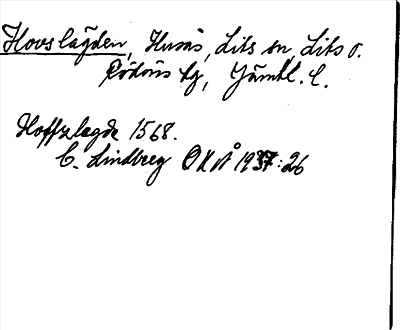 Hovslägden, Husås, Lits sn, Lits o.
Rödöns tg, Jämtl. l.
Hoffzlegde 1568.
C. Lindberg OKvÅ 1937:26